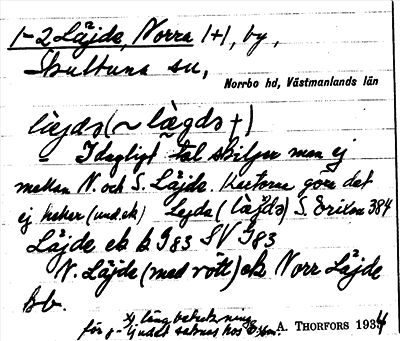 1-2 Läjde, Norra (+), by,
Skultuna sn,
Norrbo hd, Västmanlands län
läjdə (~ lägdə +)
- I dagligt tal skiljer man ej
mellan N. och S. Läjde. Kartorna göra det
ej heller (und. ek) Lejde (läjdə) S. Erikson 384
Läjde ek b I 83 SV I 83
N. Läjde (med rött) ek Norr Läjde
Bb.
x) lång beteckning
för j-ljudet saknas hos
A. THORFORS 1934